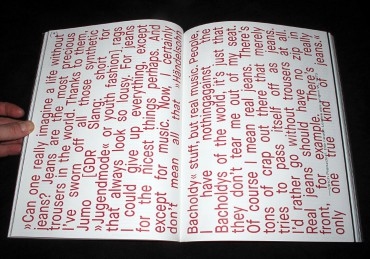 »Can one really imagine a life without
jeans? Jeans are the most precious
trousers in the world. Thanks to them,
I've sworn off all those synthetic
Jumo [GDR Slang; short for
»Jugendmode« or youth fashion] rags
that always look so lousy. For jeans
I could give up everything, except
for the nicest things perhaps. And
except for music. Now, I certainly
don't mean all that »Händelsohn
Bacholdy« stuff, but real music. People,
I have nothing against the
Bacholdys of the world, it's just that
they don't tear me out of my seat.
Of course I mean real jeans. There's
tons of crap out there that merely
tries to pass itself off as jeans.
I'd rather go without trousers at all.
Real jeans should have no zip in
front, for example. There's really
only one true kind of jeans.«